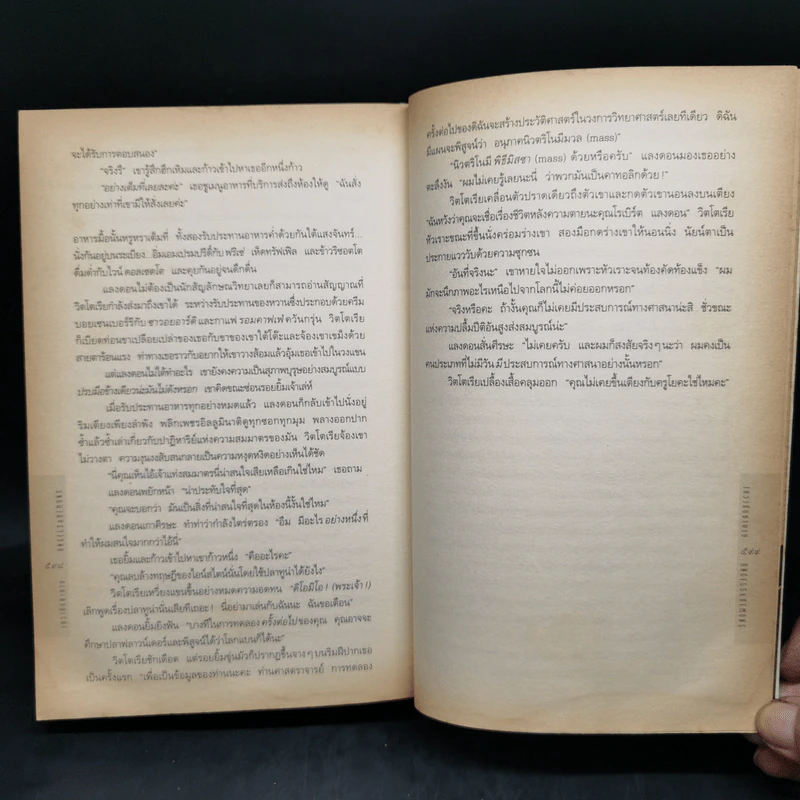 จะได้รับการตอบสนอง"
"จริงรึ" เขารู้สึกฮึกเหิมและก้าวเข้าไปหาเธออีกหนึ่งก้าว
"อย่างเต็มที่เลยละค่ะ" เธอชูเมนูอาหารที่บริการส่งถึงห้องให้ดู "ฉันสั่ง
ทุกอย่างเท่าที่เขามีให้สั่งเลยค่ะ"
อาหารมื้อนั้นหรูหราเต็มที่ ทั้งสองรับประทานอาหารค่ำด้วยกันใต้แสงจันทร์...
นั่งกันอยู่บนระเบียง...อิ่มเอมเปรมปรีดิ์กับ ฟรีเซ่ เห็ดทรัฟเฟิล และข้าวริซอตโต
ดื่มด่ำกับไวน์ ดอลเชตโต และคุยกันอยู่จนดึกดื่น
แลงดอนไม่ต้องเป็นนักสัญลักษณวิทยาเลยก็สามารถอ่านสัญญาณที่
วิตโตเรียกำลังส่งมาถึงเขาได้ ระหว่างรับประทานของหวานซึ่งประกอบด้วยครีม
บอยเซนเบอร์รีกับ ซาวอยอาร์ดิ และกาแฟ รอมคาฟเฟ่ ควันกรุ่น วิตโตเรีย
ก็เบียดท่อนขาเปลือยเปล่าของเธอกับขาของเขาใต้โต๊ะและจ้องเขาเขม็งด้วย
สายตาร้อนแรง ท่าทางเธอราวกับอยากให้เขาวางส้อมแล้วอุ้มเธอเข้าไปในวงแขน
แต่แลงดอนไม่ได้ทำอะไร เขายังคงความเป็นสุภาพบุรุษอย่างสมบูรณ์แบบ
ปรบมือข้างเดียวน่ะมันไม่ดังหรอก เขาคิดขณะซ่อนรอยยิ้มเจ้าเล่ห์
เมื่อรับประทานอาหารทุกอย่างหมดแล้ว แลงดอนก็กลับเข้าไปนั่งอยู่
ริมเตียงเพียงลำพัง พลิกเพชรอิลลูมินาติดูทุกซอกทุกมุม พลางออกปาก
ซ้ำแล้วซ้ำเล่าเกี่ยวกับปาฏิหาริย์แห่งความสมมาตรของมัน วิตโตเรียจ้องเขา
ไม่วางตา ความงุนงงสับสนกลายเป็นความหงุดหงิดอย่างเห็นได้ชัด
"นี่คุณเห็นไอ้เจ้าแห่งสมมาตรนี่น่าสนใจเสียเหลือเกินใช่ไหม" เธอถาม
แลงดอนพยักหน้า "น่าประทับใจที่สุด"
"คุณจะบอกว่า มันเป็นสิ่งที่น่าสนใจที่สุดในห้องนี้งั้นใช่ไหม"
แลงดอนเกาศีรษะ ทำท่าว่ากำลังไตร่ตรอง "อืม มีอะไร อย่างหนึ่งที่
ทำให้ผมสนใจมากกว่าไอ้นี่"
เธอยิ้มและก้าวเข้าไปหาเขาก้าวหนึ่ง "คืออะไรคะ"
"คุณลบล้างทฤษฎีของไอน์สไตน์นั่นโดยใช้ปลาทูน่าได้ยังไง"
วิตโตเรียเหวี่ยงแขนขึ้นอย่างหมดความอดทน "ดิโอมิโอ! (พระเจ้า!)
เลิกพูดเรื่องปลาทูน่านั่นเสียทีเถอะ! นี่อย่ามาเล่นกับฉันนะ ฉันขอเตือน"
แลงดอนยิ้มยิงฟัน "บางทีในการทดลอง ครั้งต่อไปของคุณ คุณอาจจะ
ศึกษาปลาฟลาวน์เดอร์และพิสูจน์ได้ว่าโลกแบนก็ได้นะ"
วิตโตเรียชักเดือด แต่รอยยิ้มขุ่นมัวก็ปรากฏขึ้นจางๆ บนริมฝีปากเธอ
เป็นครั้งแรก "เพื่อเป็นข้อมูลของท่านนะคะ ท่านศาสตราจารย์ การทดลอง
๕๙๘
ครั้งต่อไปของดิฉันจะสร้างประวัติศาสตร์ในวงการวิทยาศาสตร์เลยทีเดียว ดิฉัน
มีแผนจะพิสูจน์ว่า อนุภาคนิวตริโนมีมวล (mass)"
"นิวตริโนมี พิธีมิสซา (mass) ด้วยหรือครับ" แลงดอนมองเธออย่าง
ตะลึงงัน "ผมไม่เคยรู้เลยนะนี่ ว่าพวกมันเป็นคาทอลิกด้วย!"
วิตโตเรียเคลื่อนตัวปราดเดียวถึงตัวเขาและกดตัวเขานอนลงบนเตียง
"ฉันหวังว่าคุณจะเชื่อเรื่องชีวิตหลังความตายนะคุณโรเบิร์ต แลงดอน" วิตโตเรีย
หัวเราะขณะที่ขึ้นนั่งคร่อมร่างเขา สองมือกดร่างเขาให้นอนนิ่ง นัยน์ตาเป็น
ประกายแวววับด้วยความซุกซน
"อันที่จริงนะ" เขาหายใจไม่ออกเพราะหัวเราะจนท้องคัดท้องแข็ง "ผม
มักจะนึกภาพอะไรเหนือไปจากโลกนี้ไม่ค่อยออกหรอก"
"จริงหรือคะ ถ้างั้นคุณก็ไม่เคยมีประสบการณ์ทางศาสนาน่ะสิ ชั่วขณะ
แห่งความปลื้มปีติอันสูงส่งสมบูรณ์น่ะ"
แลงดอนสั่นศีรษะ "ไม่เคยครับ และผมก็สงสัยจริงๆ นะว่า ผมคงเป็น
คนประเภทที่ไม่มีวัน มีประสบการณ์ทางศาสนาอย่างนั้นหรอก"
วิตโตเรียเปลื้องเสื้อคลุมออก "คุณไม่เคยขึ้นเตียงกับครูโยคะใช่ไหมคะ"
๕๙๙